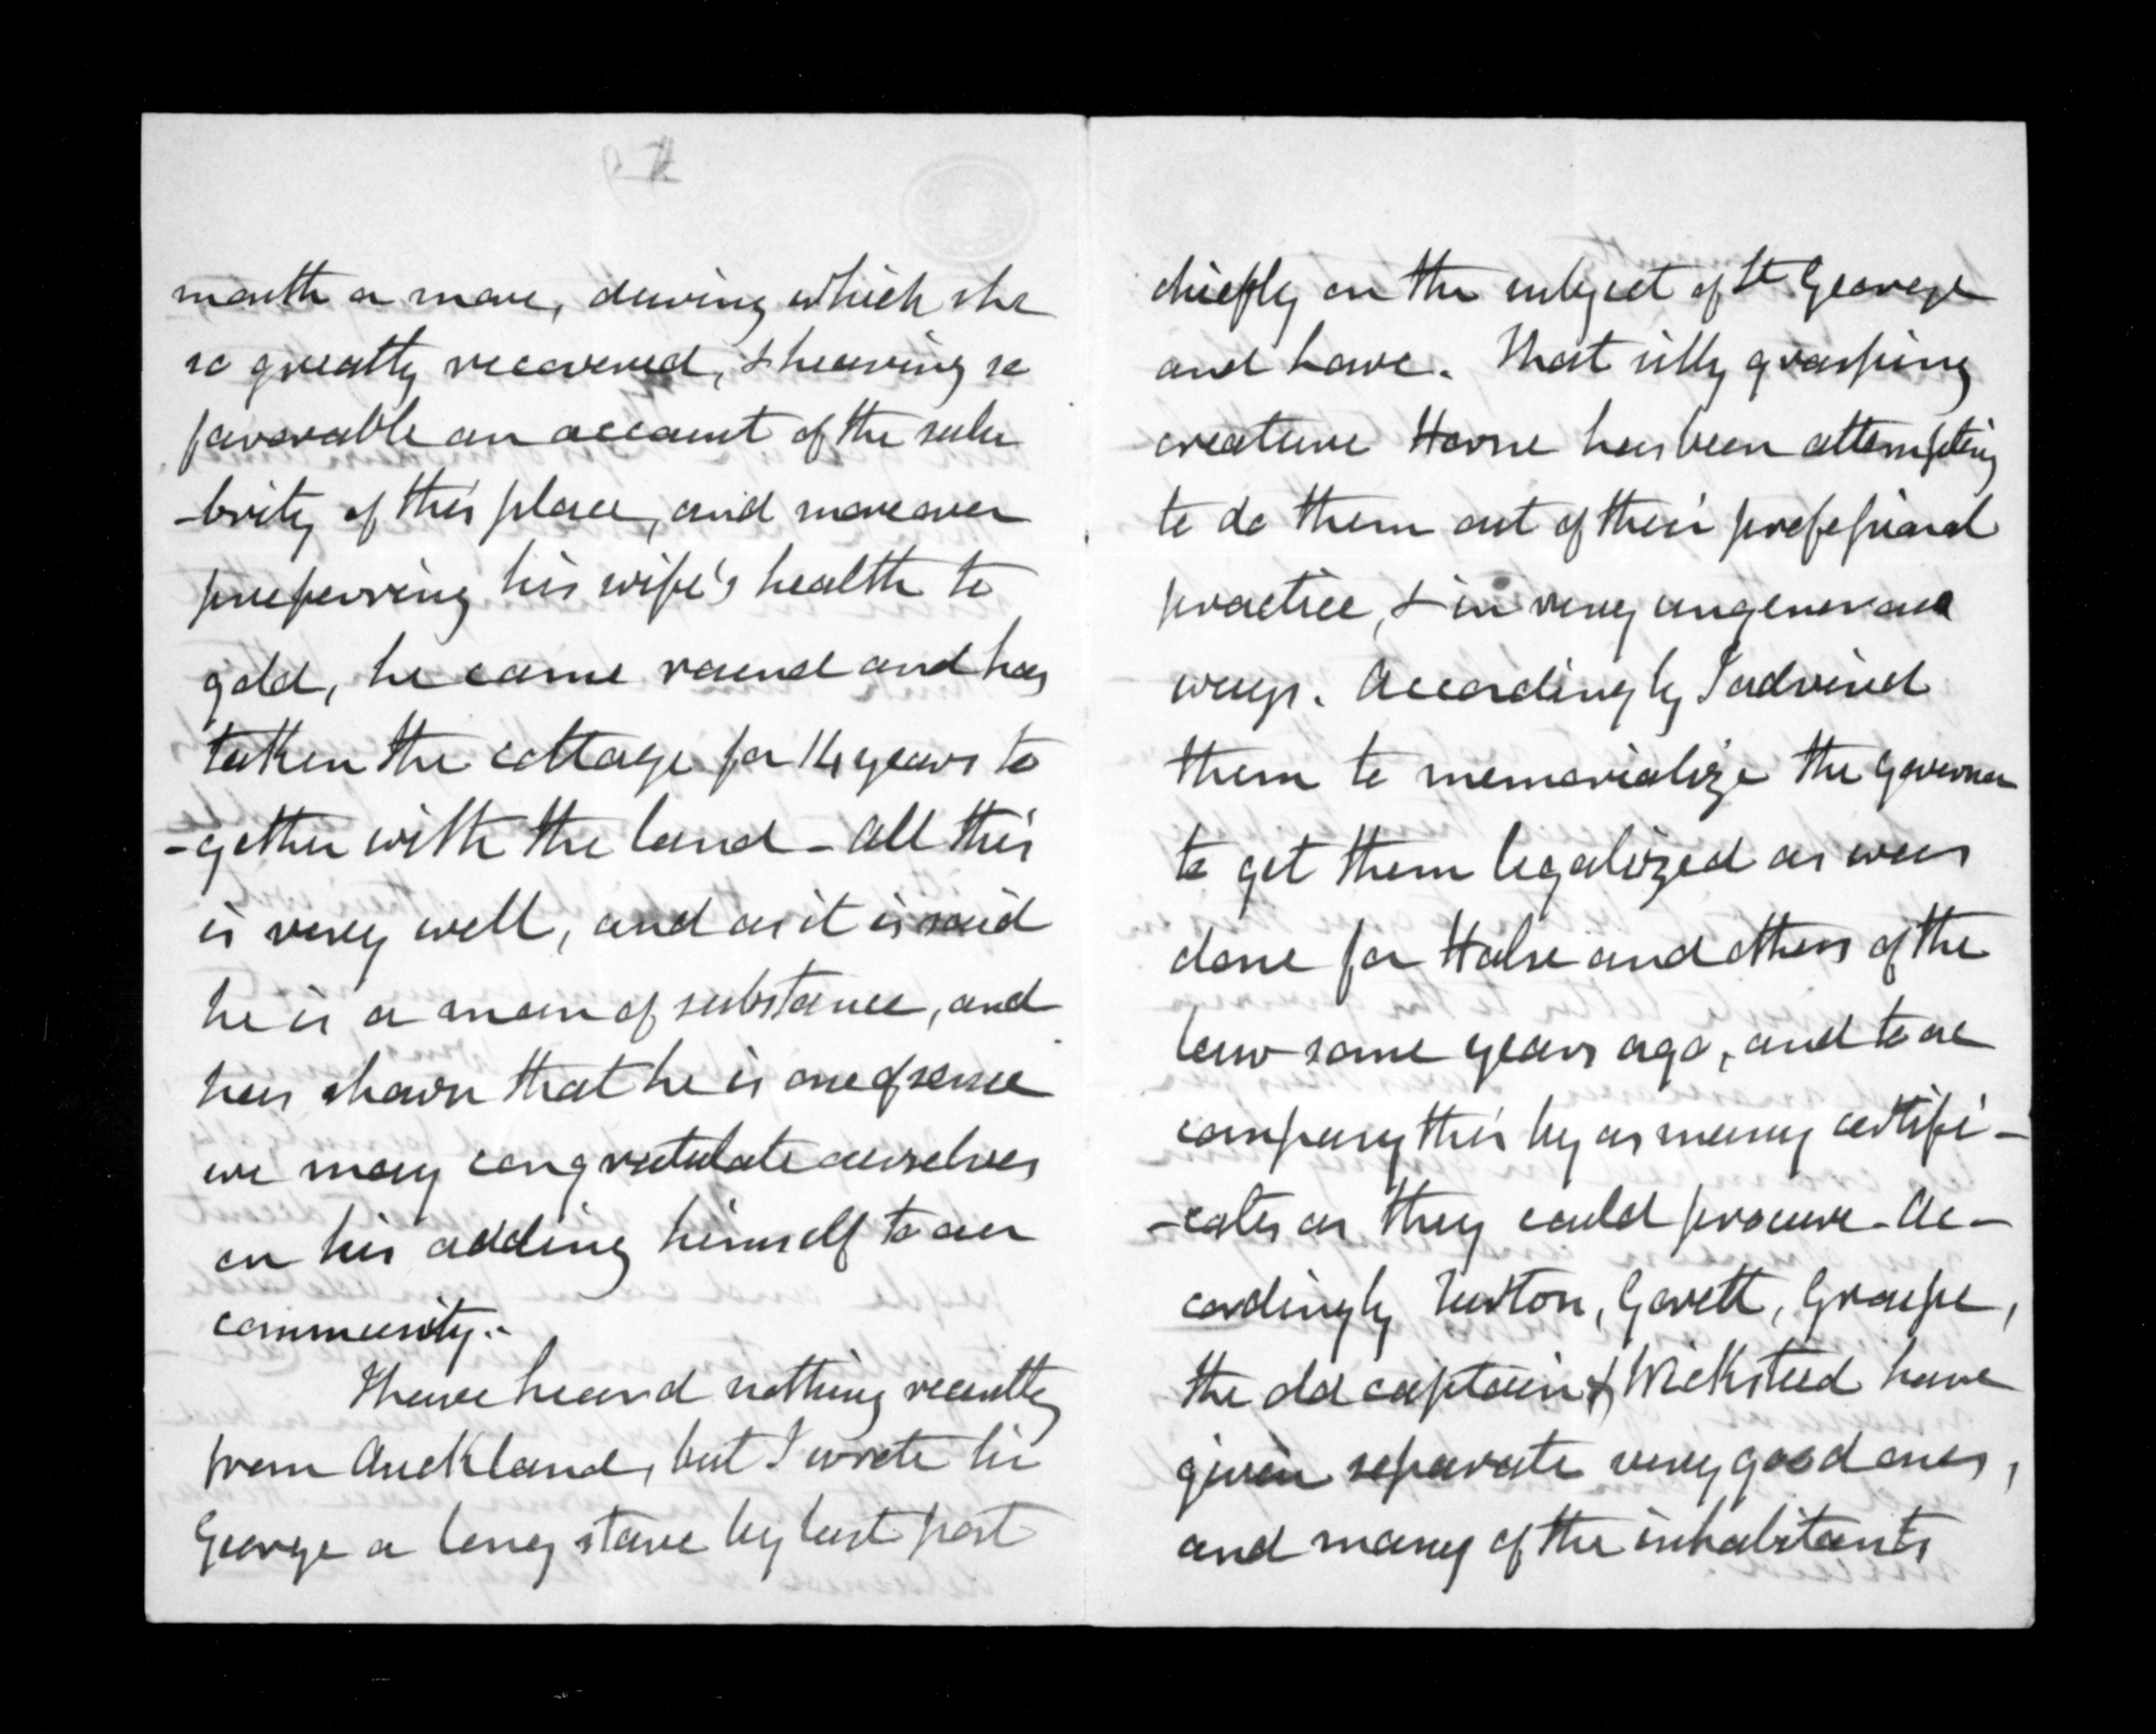 month or more, during which she
so greatly recovered, & hearing so
favorable an account of the salu
-brity of this place, and moreover
preferring his wife's health to
gold, he came round and has
taken the cottage for 14 years to
-gether with the land - All this
is very well, and as it is said
he is a man of substance, and
has shown that he is one of sense
we may congratulate ourselves
on his adding himself to our
community.-
I have heard nothing recently
from Auckland, but I wrote Sir
George a long stave by last post
chiefly on the subject of St George
and
That silly grasping
creature Horne has been attempting
to do them out of their professional
practice, & in very ungenerous
ways. Accordingly I advised
them to memorialize the Governor
to get them legalized as was
done for Halse and others of the
law some years ago, and to ac
company this by as many certifi-
-cates as they could procure - Ac-
cordingly Turton, Govett, Groube,
the old captain & Wicksteed have
given separate very good ones,
and many of the inhabitants